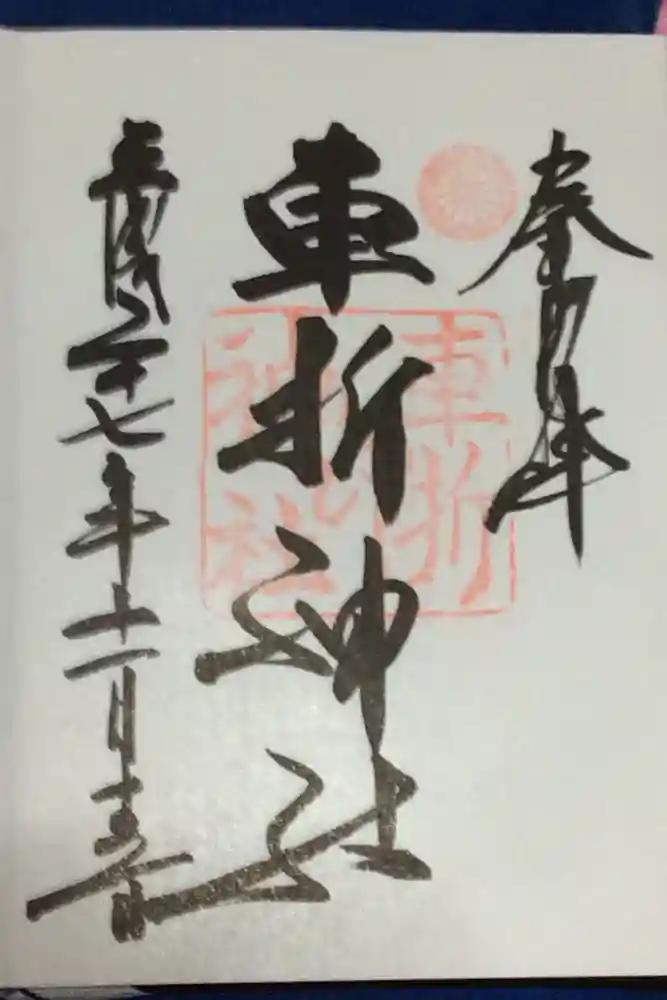 奉拝
車折神社
車折
神社
平成二十七年十一月十五日